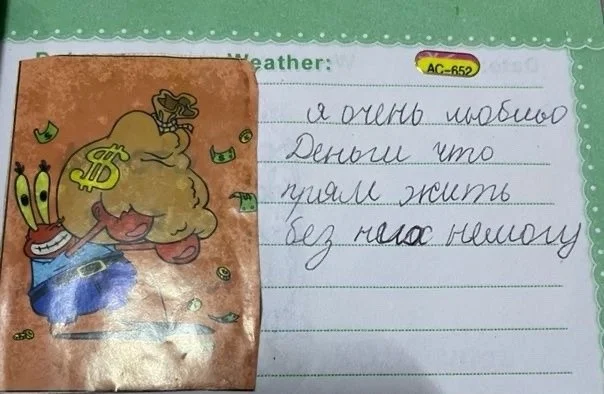 Weather:
AC-652
я очень любльо
Деньги что
прям жить
без них немогу
$